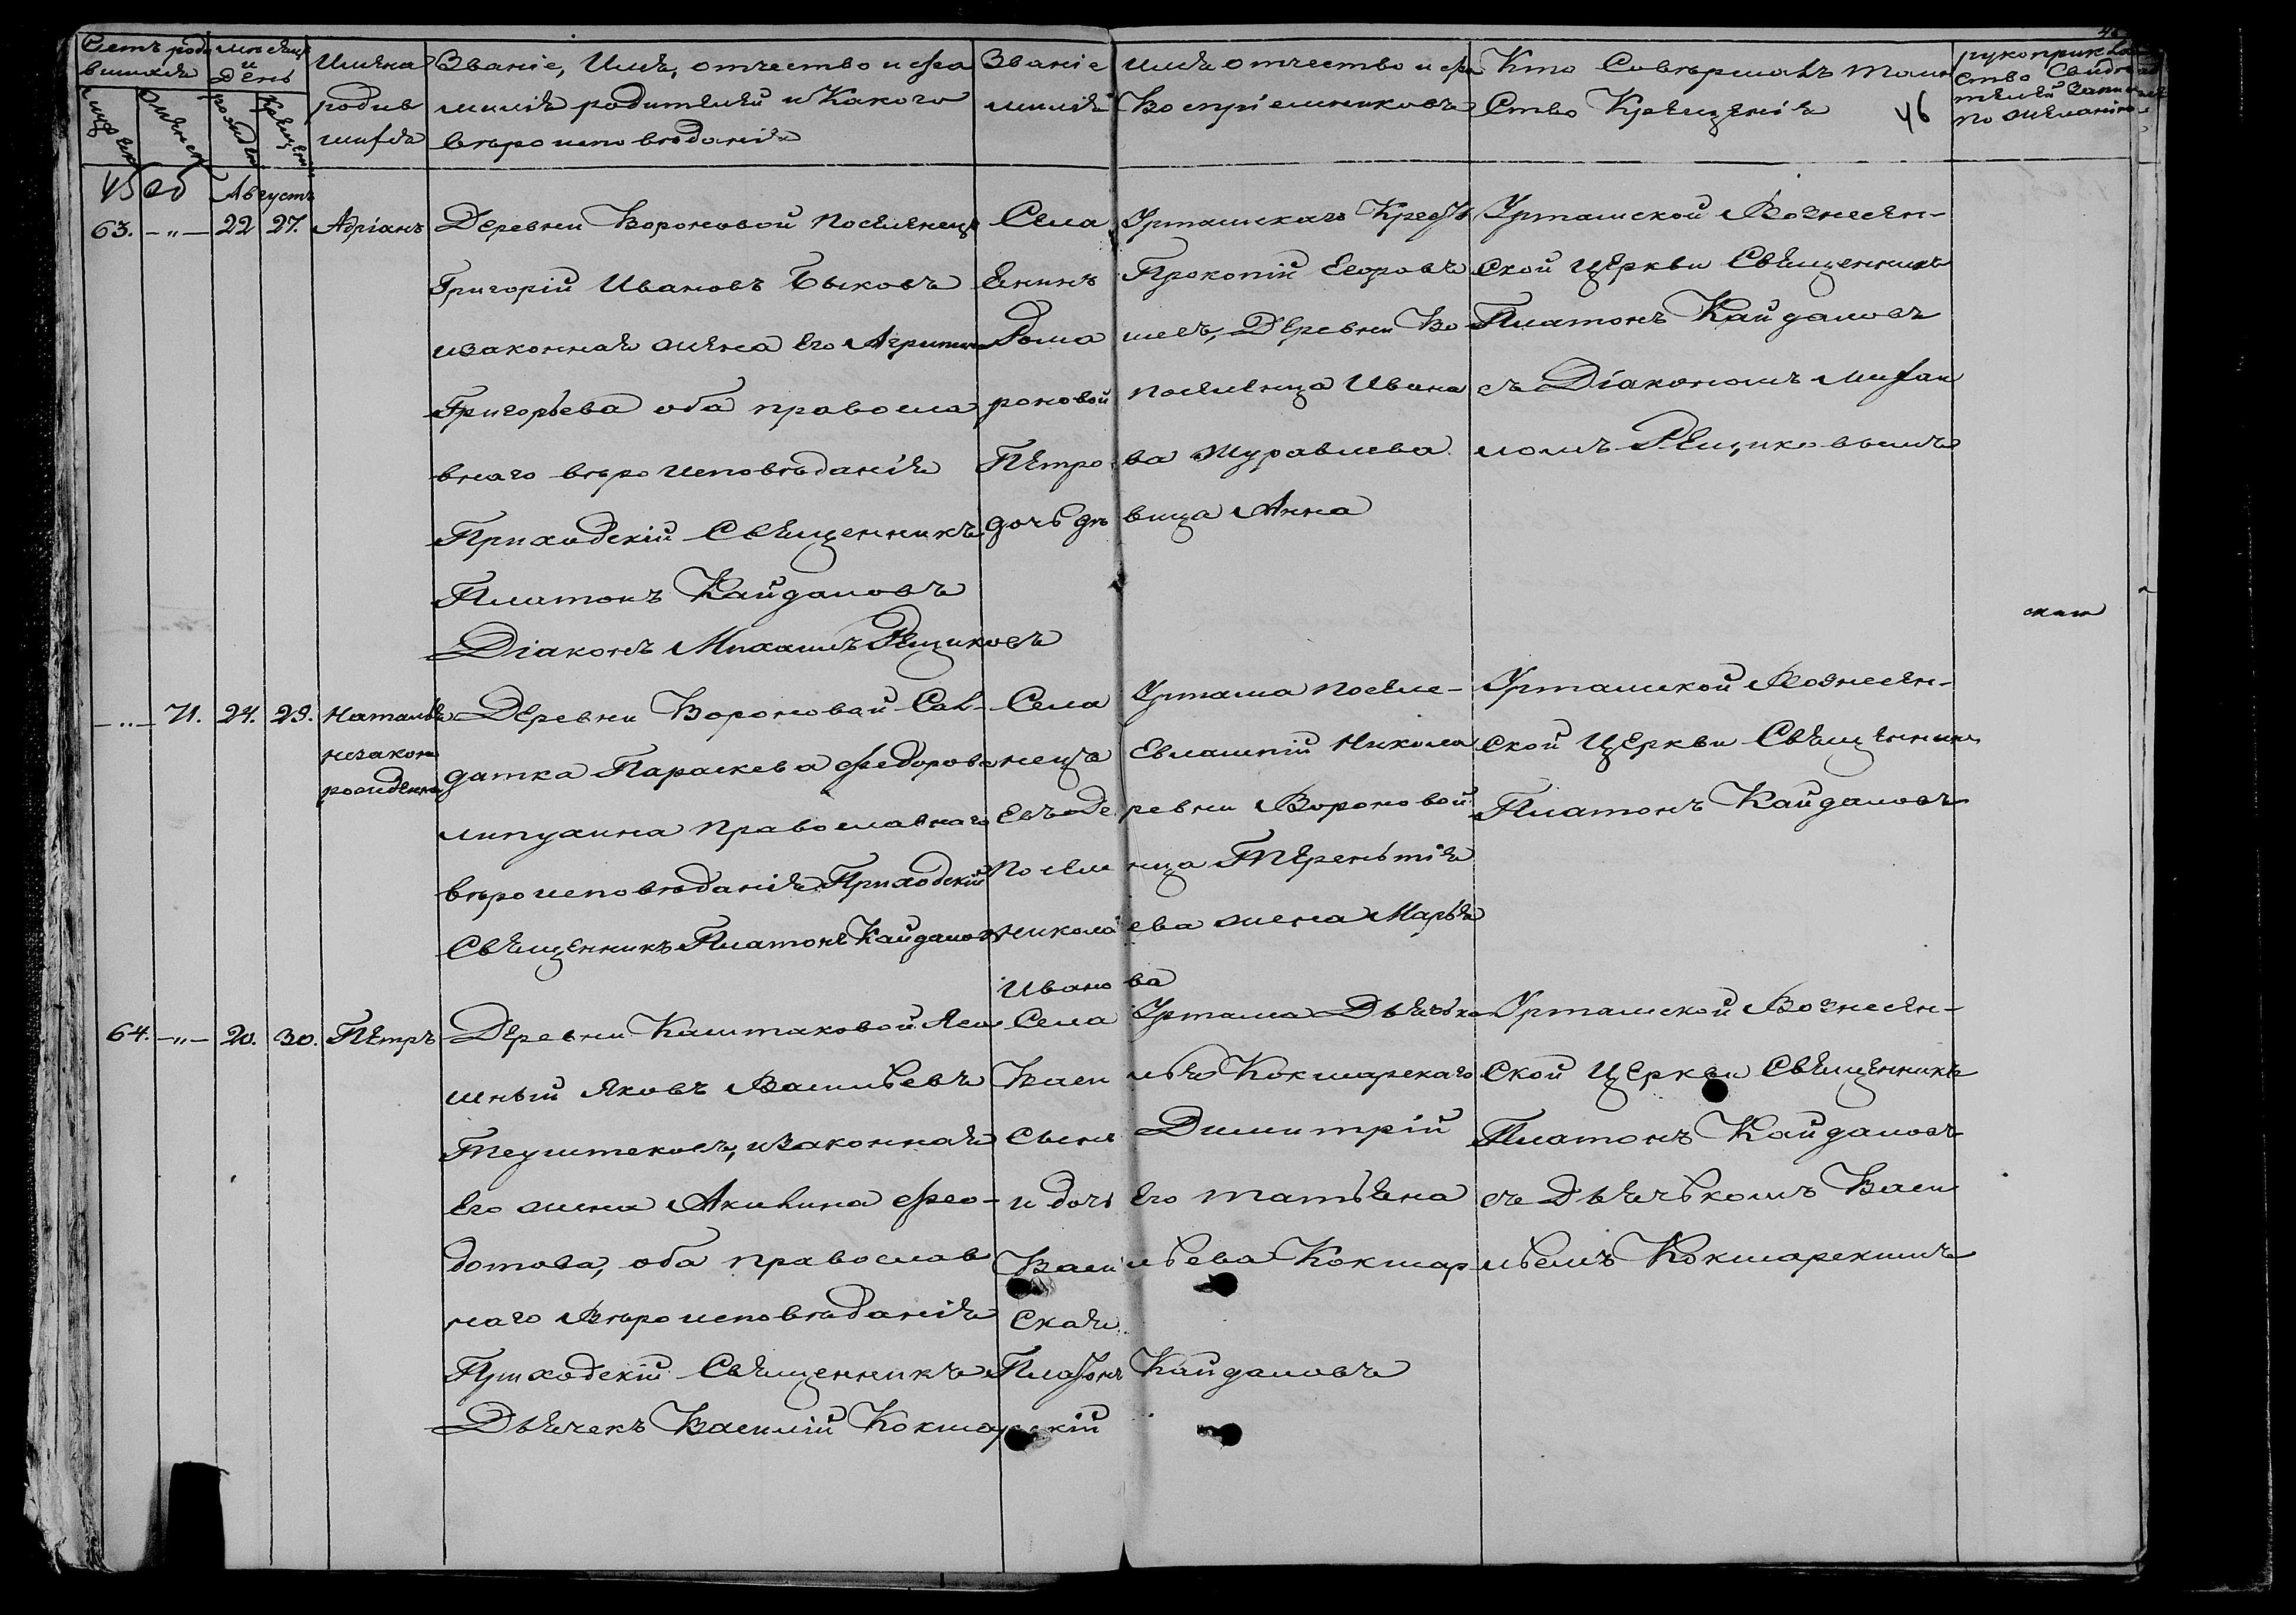 Счетъ роди
вшихся
мѣсяцъ
и
день
Имена
родив
шихся
Званіе, Имя, отчество и фа
милія родителей и Какого
вѣроисповѣданія
Званіе имя отчество и фа
милія Воспріемниковъ
Кто Совершалъ таин
Ство Крещенія
46
рукоприклад
ство Свидѣ
телей записи
по желанію
Августъ
63. —"— 22 27. Адріанъ
Деревни Вороновой поселенецъ
Григорій Ивановъ Быковъ
изаконная жена его Агрипина
Григорьева оба правосла
внаго вѣроисповѣданія
Приходскій Священникъ
Платонъ Кайдаловъ
Діаконъ Михаилъ Рещиковъ
Села Урташскаго Крестъ
Енинъ Прокопій Егоровъ
Деревни Во
роновой поселенца Ивана
Петрова Журавлева
дочь дѣвица Анна
Урташской Вознесен-
ской Церкви Священникъ
Платонъ Кайдаловъ
съ Діакономъ Михаи
ломъ Рещиковымъ
—"— 71. 24. 29. Наталья
незакон
рожденна
Деревни Вороновой Сол-
датка Параскева Федорова
Липухина православнаго
вѣроисповѣданія Приходскій
Священникъ Платонъ Кайдаловъ
Села Уртама поселе-
нецъ Евлампій Никола
евъ Деревни Вороновой
поселенца Терентія
Николаева жена Марья
Иванова
Уртамской Вознесен-
ской Церкви Священникъ
Платонъ Кайдаловъ
64. —"— 20. 30. Петръ
Деревни Каштаковой Яса
шный Яковъ Васильевъ
Теуштековъ, изаконная
его жена Акилина Фео-
дотова, оба православ
наго Вѣроисповѣданія
Приходскій Священникъ Платонъ Кайдаловъ
Дьячекъ Василій Кокшарскій
Села Уртама Дьячька
Василья Кокшарскаго
сынъ Димитрій
и дочь его Татьяна
Васильева Кокшар
ская
Уртамской Вознесен-
ской Церкви Священникъ
Платонъ Кайдаловъ
съ Дьячькомъ Васи
льемъ Кокшарскимъ